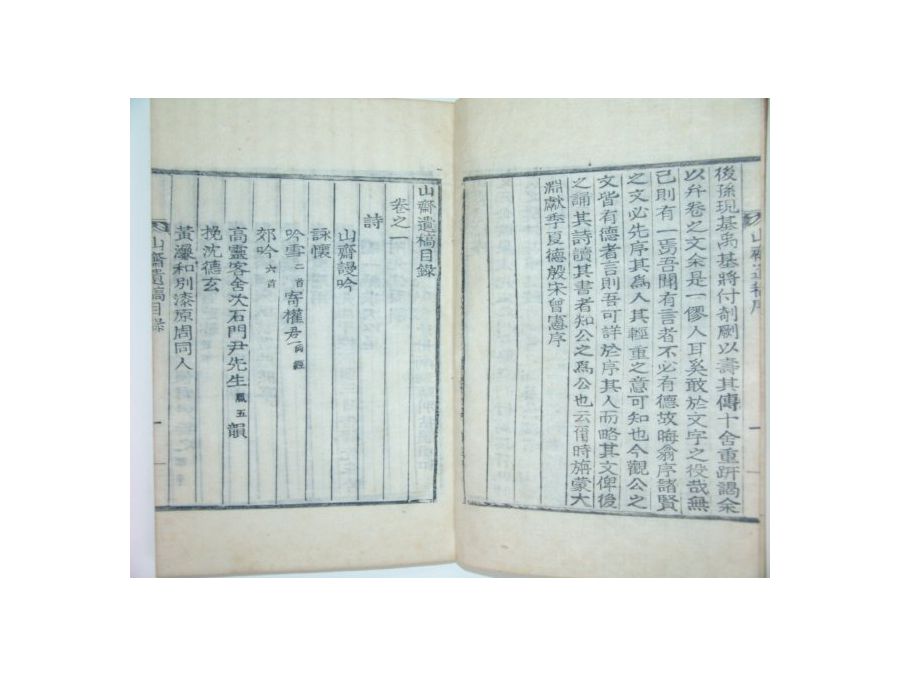 山齋遺稿序
後孫現基禹基將付剞劂以壽其傳十舍重趼謁余
以弁卷之文余是一僇人耳奚敢於文字之役哉無
已則有一焉吾聞有言者不必有德故晦翁序諸賢
之文必先序其為人其輕重之意可知也今觀公之
文皆有德者言則吾可詳於序其人而略其文俾後
之誦其詩讀其書者知公之為公也云爾時旃蒙大
淵獻季夏德殷宋曾憲序
山齋遺稿目錄
卷之一
詩
山齋謾吟
詠懷
吟雪二首 寄權君
郊吟六首
高靈客舍次石門尹先生鳳五韻
挽沈德玄
黃瀑和別漆原周同人
山齋遺稿目錄
一